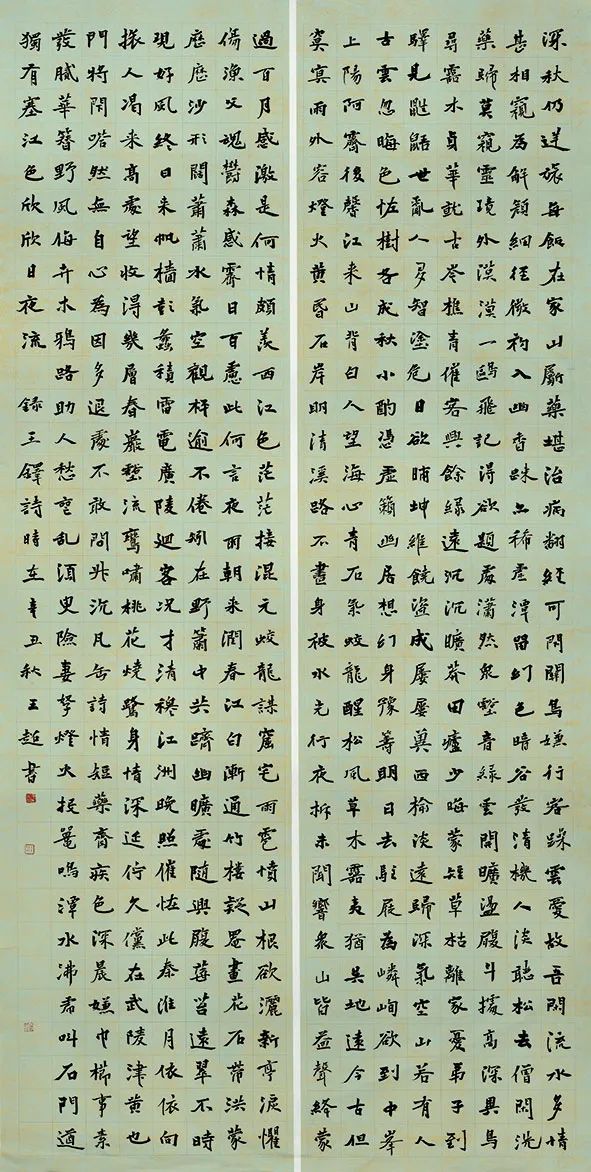 深秋仍逆旅每飽在家山斸藥堪治病翻經可閉關鳥嫌行客踩雲愛故吾閑流水多情
甚相窺為解頞細徑微礿入幽香跌亦稀虛潭留幻色暗谷發清機人淡聽松去僧閑洗
藥歸莫窺靈境外漠漠一鷗飛記得欲題處瀟然泉壑音綠雲閣曠盪履斗據高深異鳥
尋露水貞華就古岑樵青催客興餘綠遠沉沉曠莽田壚少晦蒙短草枯離家憂弟子到
驛見鼪鼯世亂人多智塗危日欲晡坤維饒盜成屢屢冀西榆淡遠歸深氣空山若有人
古雲忽晦色怪樹各成秋小酌憑虛籟幽居想幻身豫籌明日去駐屐為嶙峋欲到中峯
上陽阿霽後聲江來山背白人望海心青石氣蛟龍醒松風草木露夷猶吳地遠今古但
寞寞雨外客燈火黃昏石岸明清溪路不盡身被水光行夜柝未聞響泉山皆益聲絳蒙
過百月感激是何情頗羨西江色茫茫接混元蛟龍謀窟宅雨雹憤山根欲灑新亭淚懼
傷漁父魂鬱森感霽日百慮此何言夜雨朝來潤春江白漸通竹樓愚畫花石帶洪蒙
歷歷沙形闊蕭蕭水氣空觀梓逾不倦矧在野蕭中共躋幽曠處隨興履莓苔遠翠不時
現好風終日來帆檣彭蠡積雷電廣陵迴客況才清穆江洲晚照催怪此秦淮月依依向
猿人曷來高處望收得幾層春巖壑流鶯嘯桃花燒鷺身情深延佇久儻在武陵津黃也
門將閉嗒然無自心為因多退處不敢問升沉凡缶詩情短藥齋疾色深晨嫌巾櫛事素
發膩華簪野風侮卉木鴉路助人愁更亂須臾險妻孥燈火投篙嗚潭水沸看叫石門遒
獨有塞江色欣欣日夜流 錄王鐸詩時在辛丑秋王超書